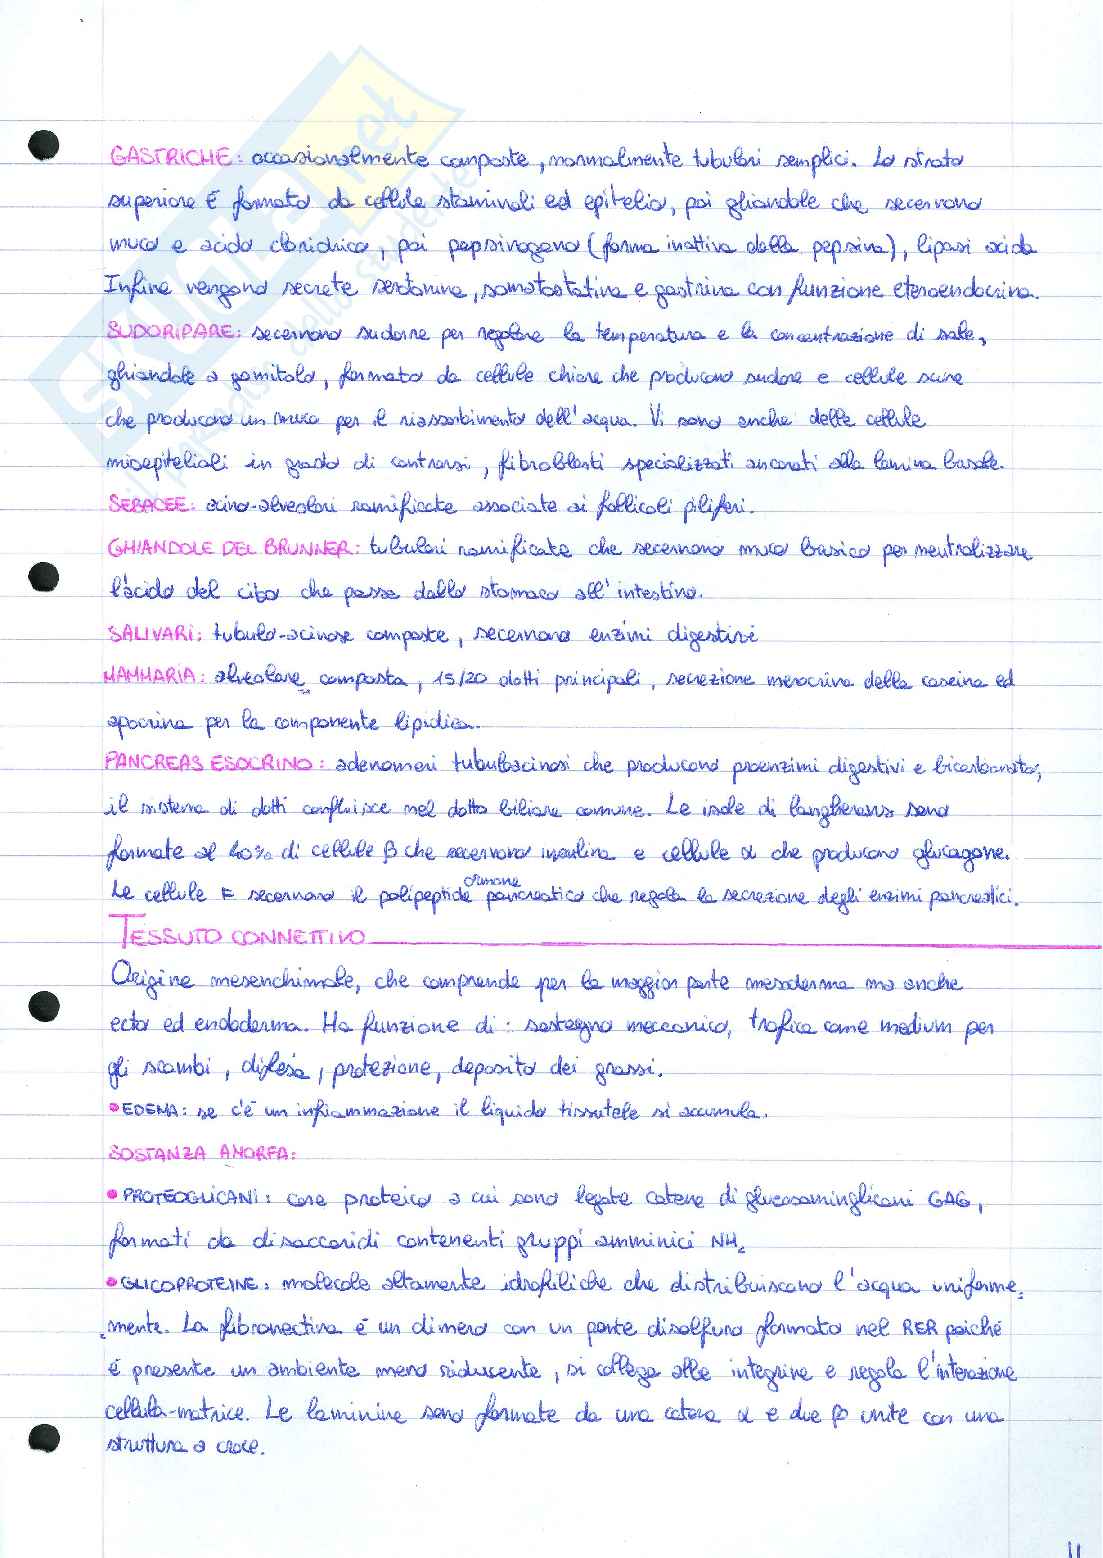 GASTRICHE: occasionalmente composte, normalmente tubulari semplici. Lo strato
superiore è formato da cellule staminali ed epitelio, poi ghiandole che secernono
muco e acido cloridrico, poi pepsinogeno (forma inattiva della pepsina), lipasi acida
Infine vengono secrete serotonina, somatostatina e gastrina con funzione eteroendocrina.
SUDORIPARE: secernono sudore per regolare la temperatura e la concentrazione di sale,
ghiandole a gomitolo, formato da cellule chiare che producono sudore e cellule scure
che producono un muco per il riassorbimento dell'acqua. Vi sono anche delle cellule
mioepiteliali in grado di contrarsi, fibroblasti specializzati ancorati alla lamina basale.
SEBACEE: acino-alveolari ramificate associate ai follicoli piliferi.
GHIANDOLE DEL BRUNNER: tubulari ramificate che secernono muco basico per neutralizzare
l'acido del cibo che passa dallo stomaco all'intestino.
SALIVARI: tubulo-acinose composte, secernono enzimi digestivi
MAMMARIA: alveolare composta, 15/20 dotti principali, secrezione merocrina della caseina ed
apocrina per la componente lipidica.
PANCREAS ESOCRINO: adenomeri tubuloacinosi che producono proenzimi digestivi e bicarbonato,
il sistema di dotti confluisce nel dotto biliare comune. Le isole di langherans sono
formate al % di cellule β che secernono insulina e cellule α che producono glucagone.
ormone
Le cellule F secernono il polipeptide pancreatico che regola la secrezione degli enzimi pancreatici.
TESSUTO CONNETTIVO
Origine mesenchimale, che comprende per la maggior parte mesoderma ma anche
ecto ed endoderma. Ha funzione di: sostegno meccanico, trofica come medium per
gli scambi, difesa, protezione, deposito dei grassi.
• EDEMA: se c'è un infiammazione il liquido tissutale si accumula.
SOSTANZA AMORFA:
• PROTEOGLICANI: core proteico a cui sono legate catene di glucosaminglicani GAG,
formati da disaccaridi contenenti gruppi amminici NH₂
• GLICOPROTEINE: molecole altamente idrofiliche che distribuiscono l'acqua uniforme=
=mente. La fibronectina è un dimero con un ponte disolfuro formato nel RER poiché
è presente un ambiente meno riducente, si collega alle integrine e regola l'interazione
cellula-matrice. Le laminine sono formate da una catena α e due β unite con una
struttura a croce.